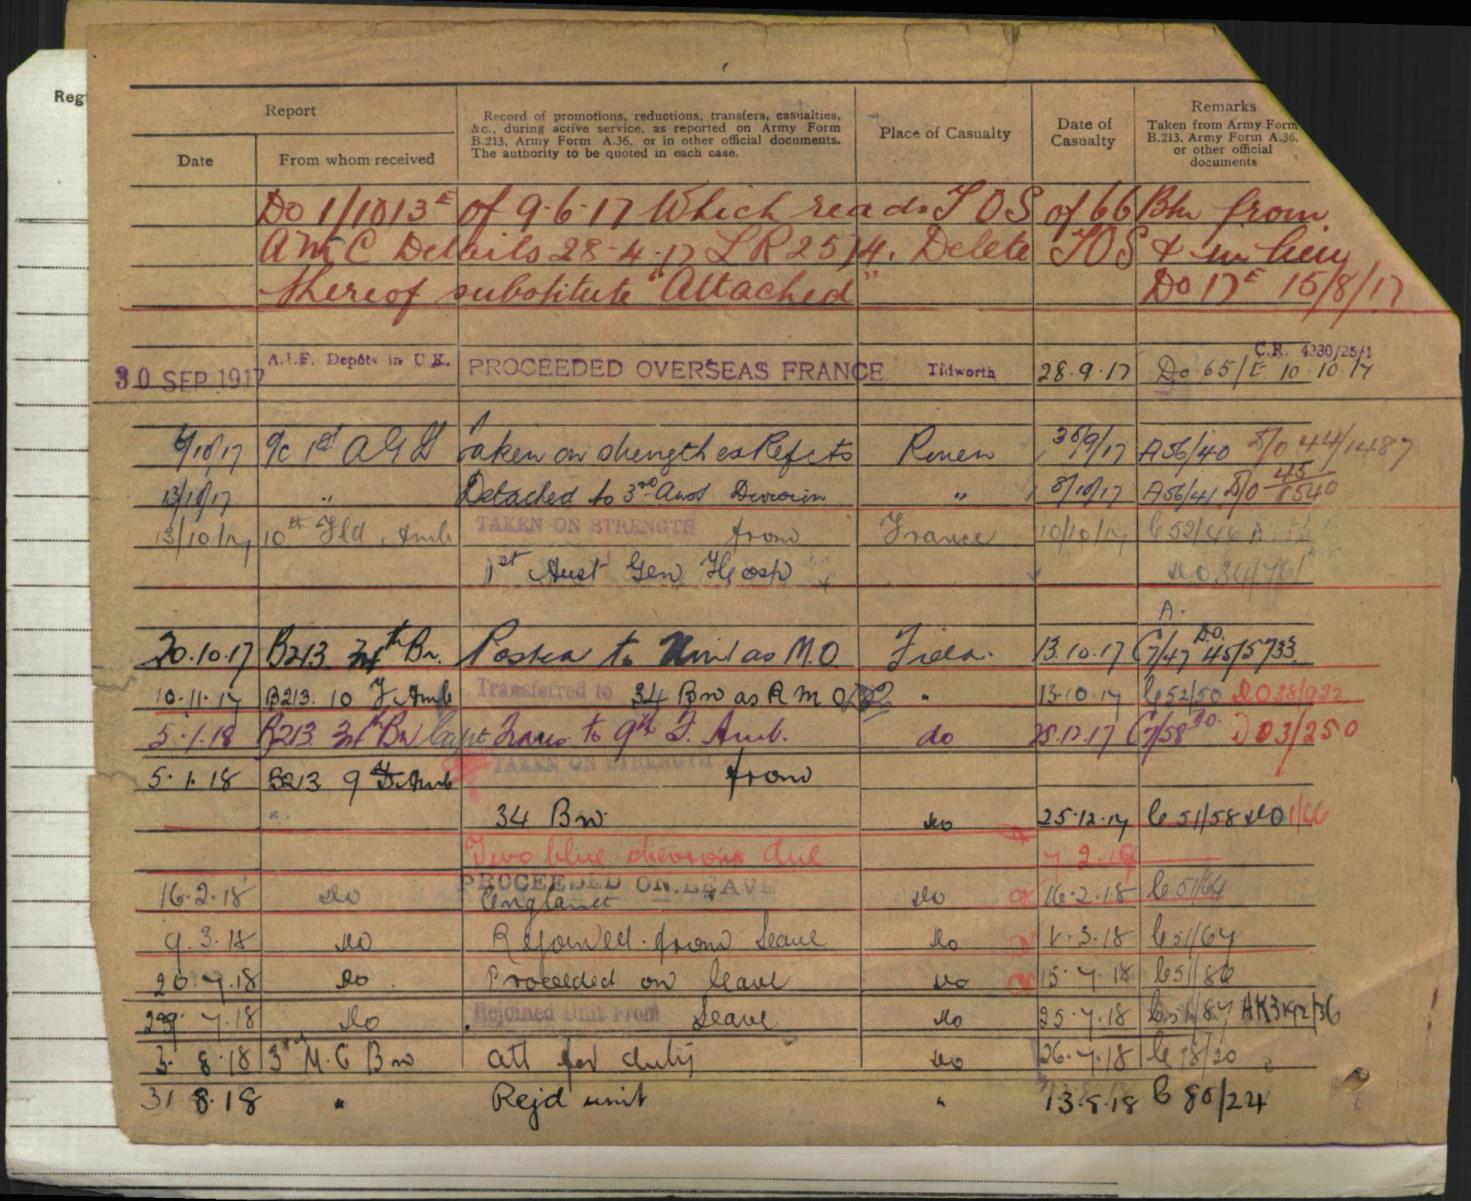 Regt
Report
Record of promotions, reductions, transfers, casualties, &c., during active service, as reported on Army Form B.213, Army Form A.36, or in other official documents. The authority to be quoted in each case.
Place of Casualty
Date of Casualty
Remarks
Taken from Army Form B.213, Army Form A.36, or other official documents
Date From whom received
Do 1/1013E of 9.6.17 Which reads TOS of 66 Bn from
A M C Details 28.4.17 LR 2574. Delete TOS & in lieu
thereof substitute "Attached" Do 17E 15/8/17
30 SEP 1917 A.I.F. Depôts in U.K. PROCEEDED OVERSEAS FRANCE Tidworth 28.9.17 C.R. 4230/25/1 Do 65/E 10.10.17
6/10/17 O/c 1st A G H Taken on strength ex Refcts Rouen 30/9/17 A56/40 D/O 44/1487
13/10/17 " Detached to 3rd Aust Division " 8/10/17 A56/41 D/O 45/1540
13/10/17 10th Fld Amb TAKEN ON STRENGTH from France 10/10/17 C52/46
1st Aust Gen Hosp DO 34/761
A.
20.10.17 B213 34th Bn. Posted to Unit as M.O Field. 13.10.17 C7/47 D.O. 45/5733
10.11.17 B213. 10 F Amb Transferred to 34 Bn as R M O " 13.10.17 C52/50 DO38/922
5.1.18 B213 34th Bn Capt Trans. to 9th F. Amb. do 25.12.17 C7/58 DO3/250
5.1.18 B213 9 F Amb TAKEN ON STRENGTH from
34 Bn Do 25.12.17 C51/58 DO 1/46
Two blue chevrons due 7.2.18
16.2.18 Do PROCEEDED ON LEAVE England Do 16.2.18 C51/64
9.3.18 Do Rejoined from Leave Do 3.18 C51/67
20.7.18 Do Proceeded on leave Do 15.7.18 C51/86
29.7.18 Do Rejoined Unit From Leave Do 25.7.18 C51/87
3.8.18 3rd M.G Bn att for duty Do 26.7.18 C78/20
31 8.18 " Rejd unit " 13.8.18 C 80/24